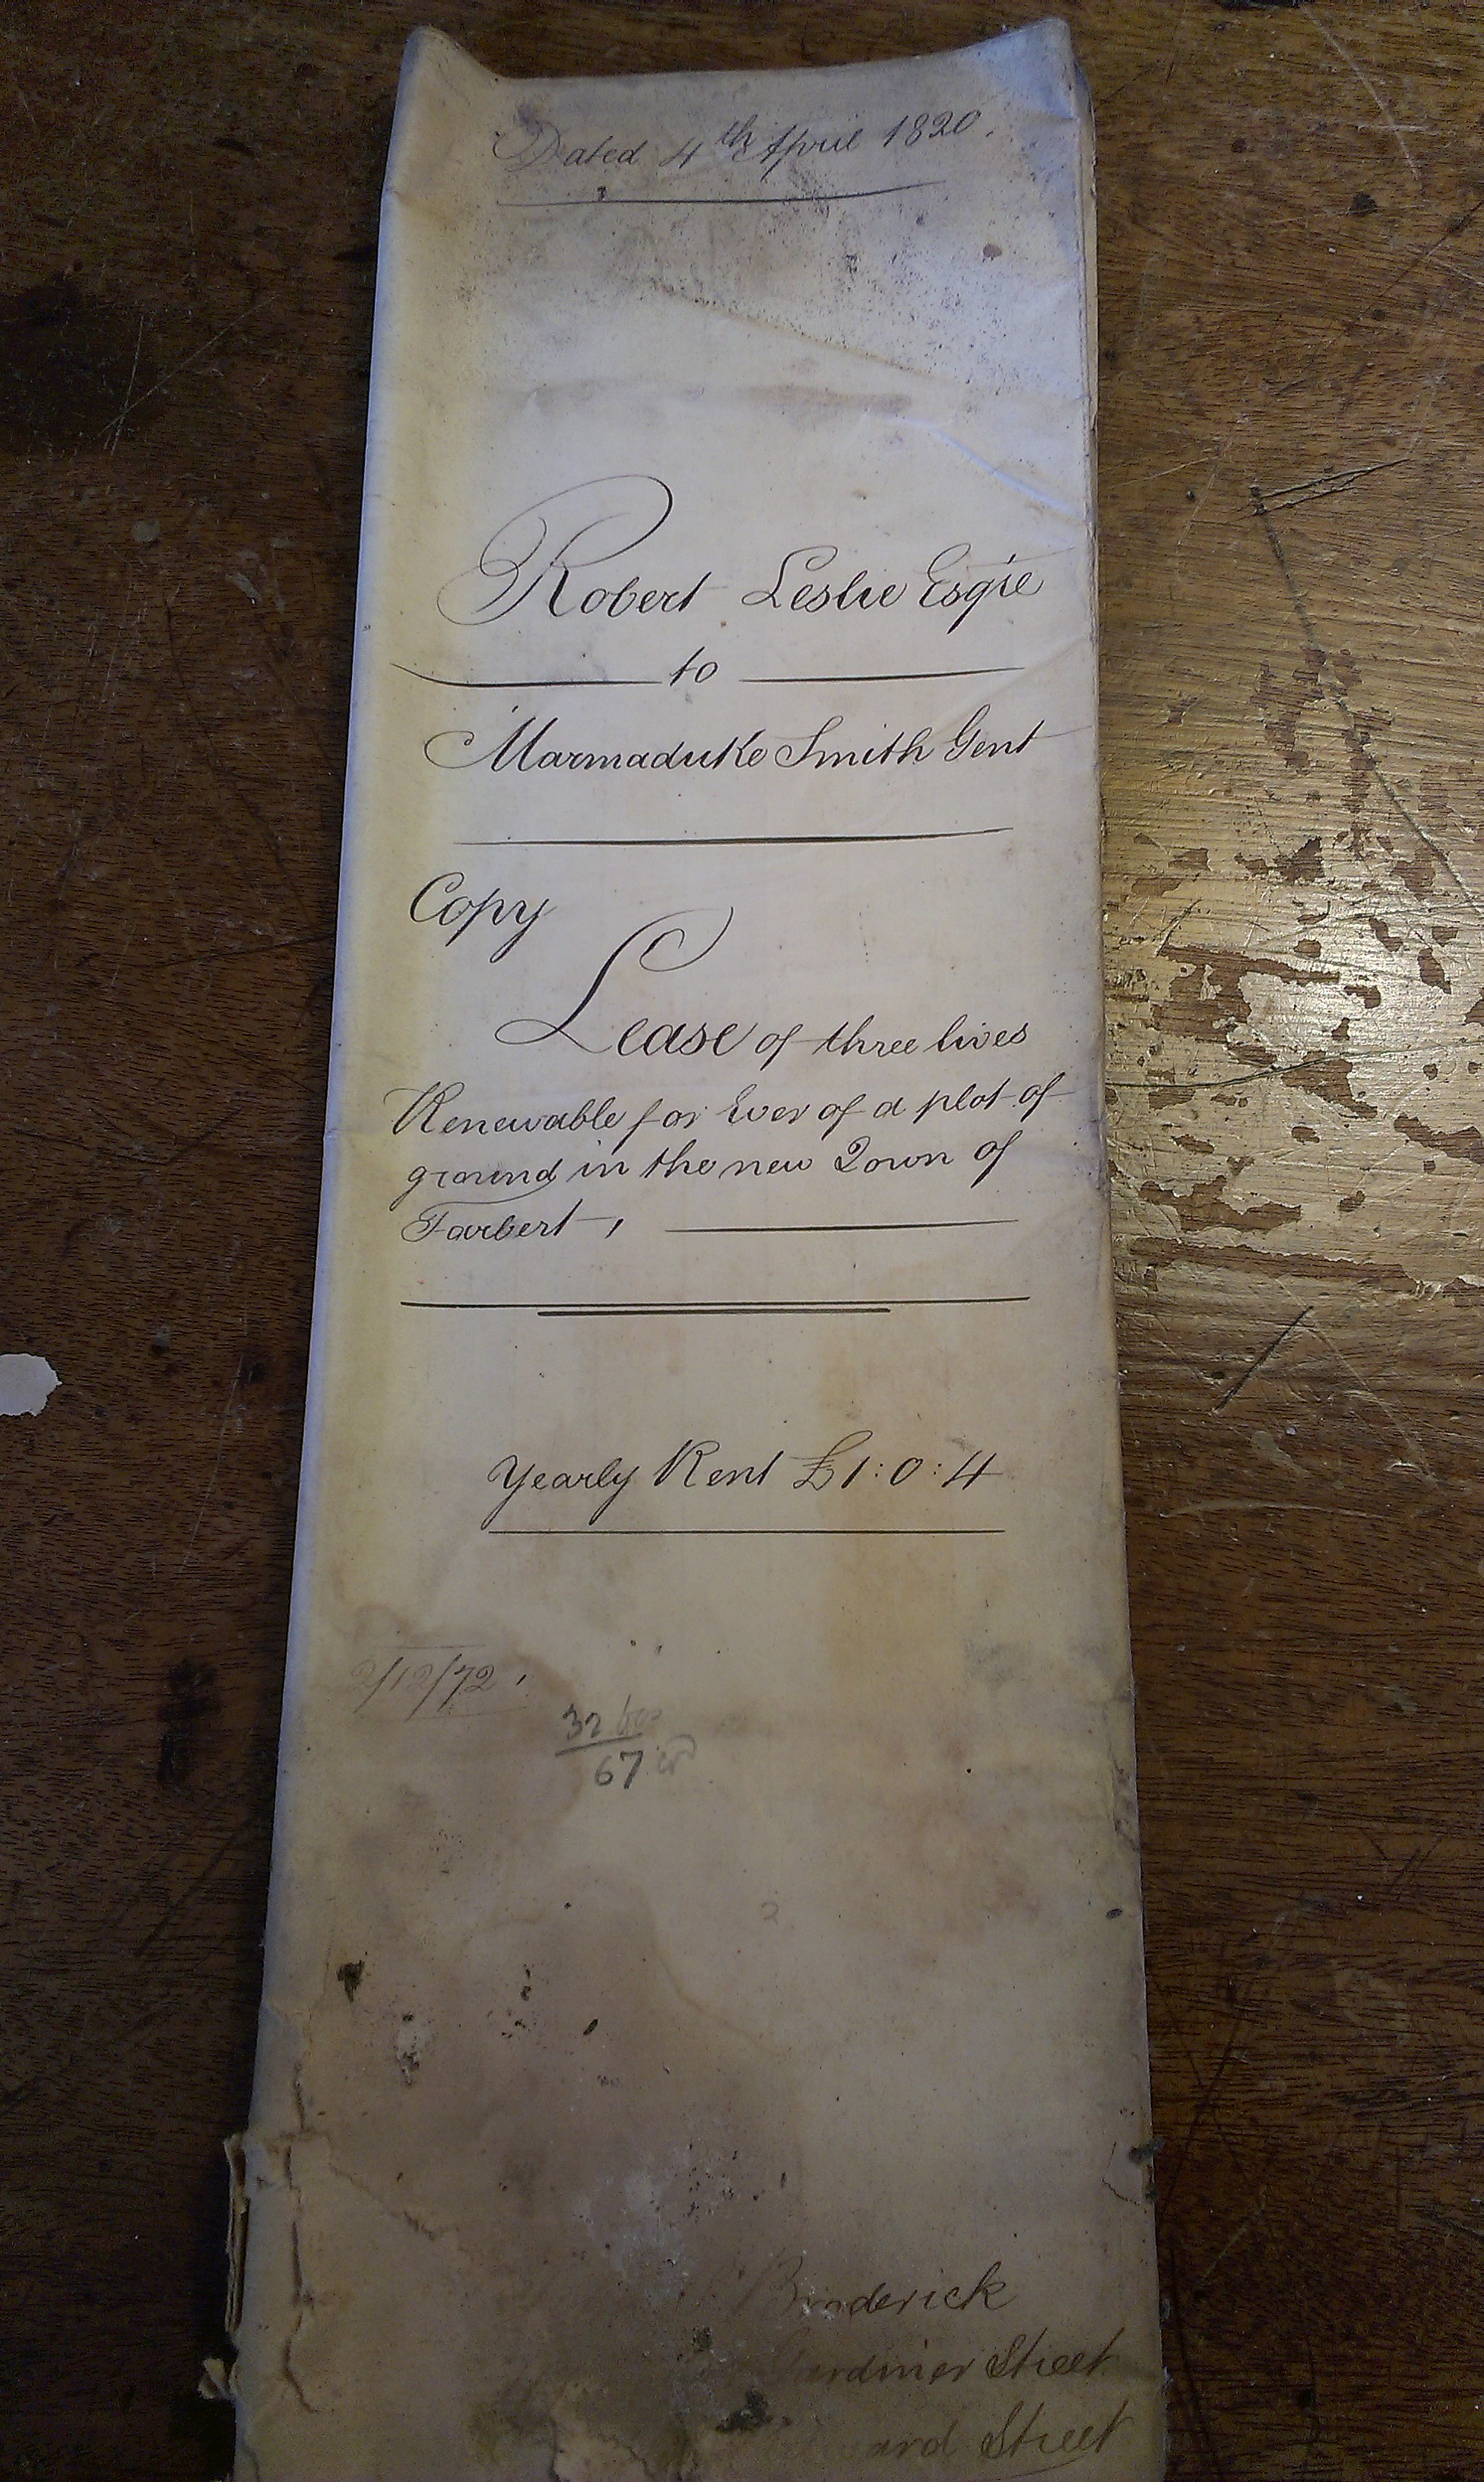 Dated 4th April 1820.
Robert Leslie Esqre
to
Marmaduke Smith Gent
Copy
Lease of three lives
Renewable for Ever of a plot of
ground in the new Town of
Tarbert,
Yearly Rent £1:0:4
2/12/72
32
67
Broderick
Gardiner Street
Street